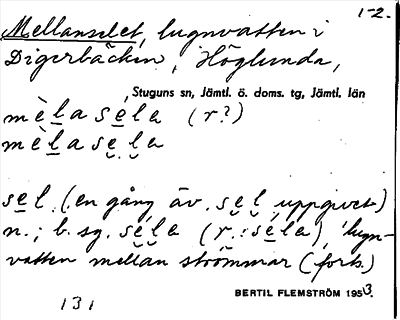 1-2.
Mellanselet, lugnvatten i
Digerbäcken, Höglunda,
Stuguns sn, Jämtl. ö. doms. tg, Jämtl. län
mèlaséla (r?)
mèlasela
sel (en gång äv. sel uppgivet)
n.; b. sg. séla (r.: séla), 'lugn-
vatten mellan strömmar (forts.)
BERTIL FLEMSTRÖM 1953.
131